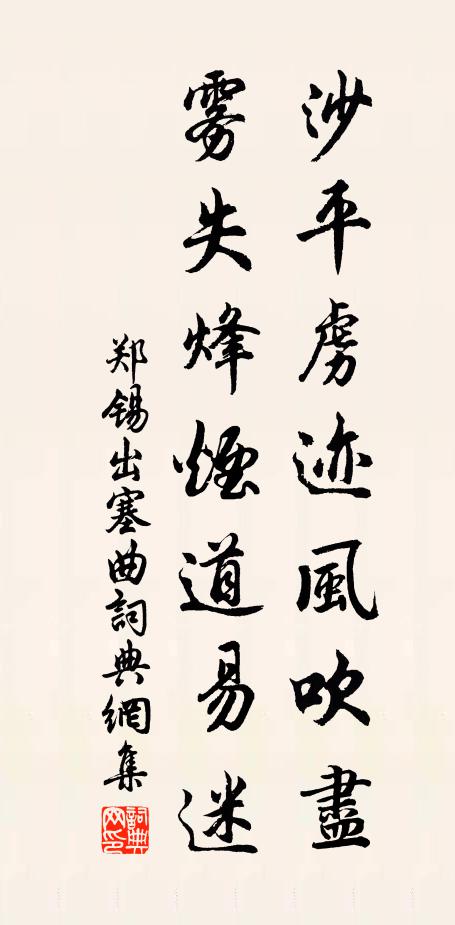 沙平虏迹風吹盡
雾失烽煙道易迷
郑锡出塞曲詞典網集
詞典網印